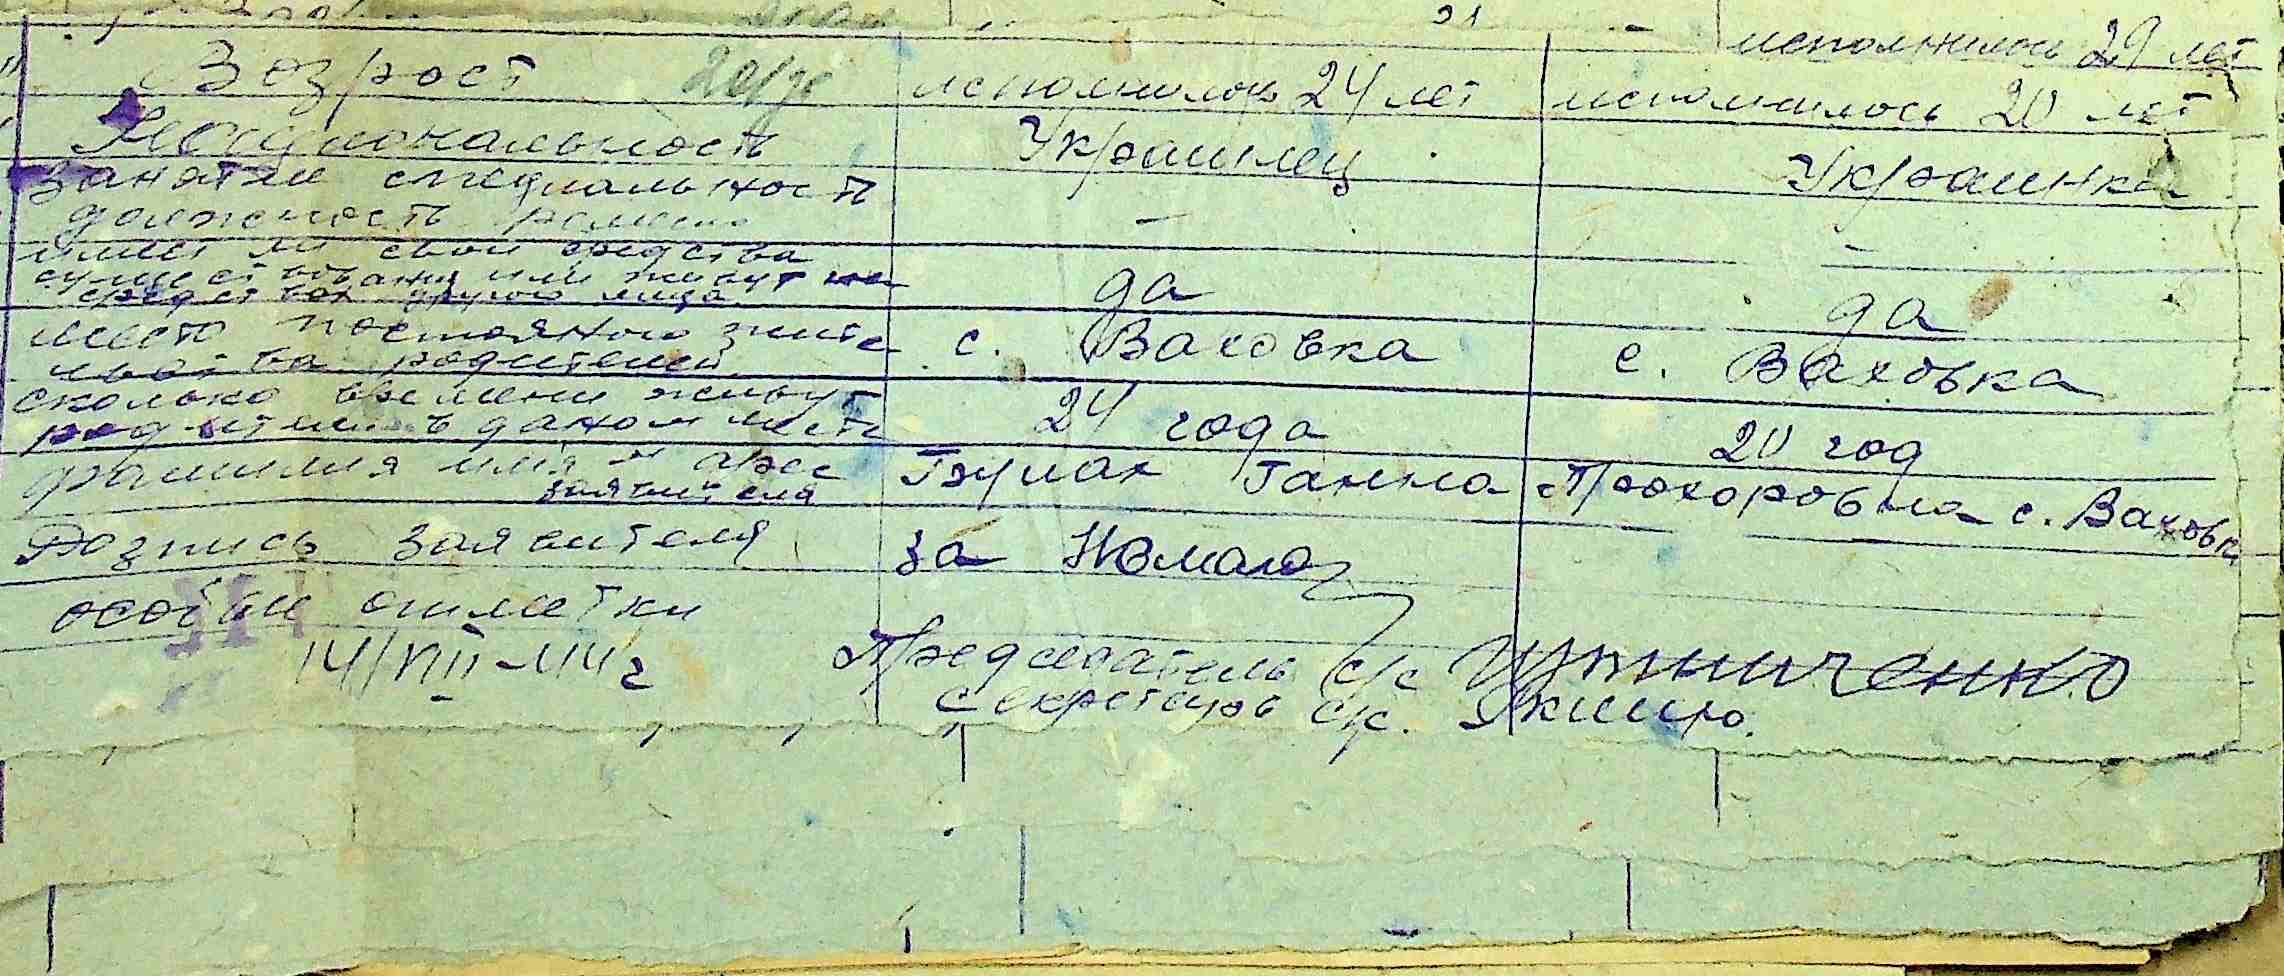 исполнилось 29 лет
Возрост исполнилось 24 лет исполнилось 20 лет
Национальность Украинец Украинка
Занятие специальность
должность ремесло - -
имеет ли свои средства
существования или живут на
средствах другого лица да да
место постояного жите
льства родителей с. Ваховка с. Ваховка
сколько времени живут
родители в даном месте 24 года 20 год
фамилия имя и адрес
заявителя Ганна Прохоровна с. Ваховка
Розпись заявителя за
особые отметки
14/VIII-44 г Председатель с/с
Секретарь с/с.